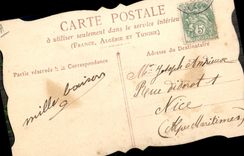 CARTE POSTALE
à utiliser seulement dans le service intérieur
(FRANCE, ALGÉRIE ET TUNISIE)
Partie réservée à la Correspondance
Adresse du Destinataire
5
mille baisers
Mr Joseph
Rue
Nice
(Alpes Maritimes)